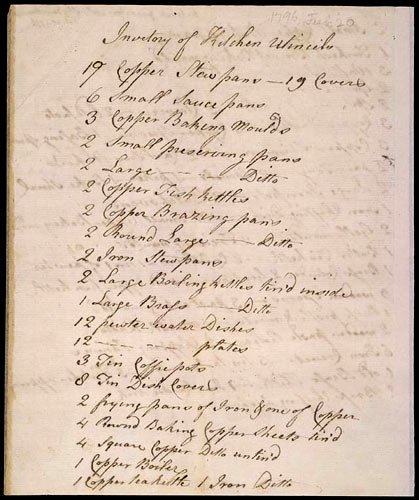 1796, Feb 20
Invetory of Kitchen Utincils
19 Copper Stewpans — 19 Covers
6 Small Sauce pans
3 Copper Baking Moulds
2 Small preserving pans
2 Large — Ditto
2 Copper Fish kettles
2 Copper Brazing pans
2 Round Large — Ditto
2 Iron Stewpans
2 Large Boiling kettles tin'd inside
1 Large Brass — Ditto
12 pewter water Dishes
12 — — — plates
3 Tin Coffie pots
8 Tin Dish Covers
2 frying pans of Iron & one of Copper
4 Round Baking Copper Sheets tin'd
4 Square Copper Ditto untind
1 Copper Boiler
1 Copper teakettle 1 Iron Ditto